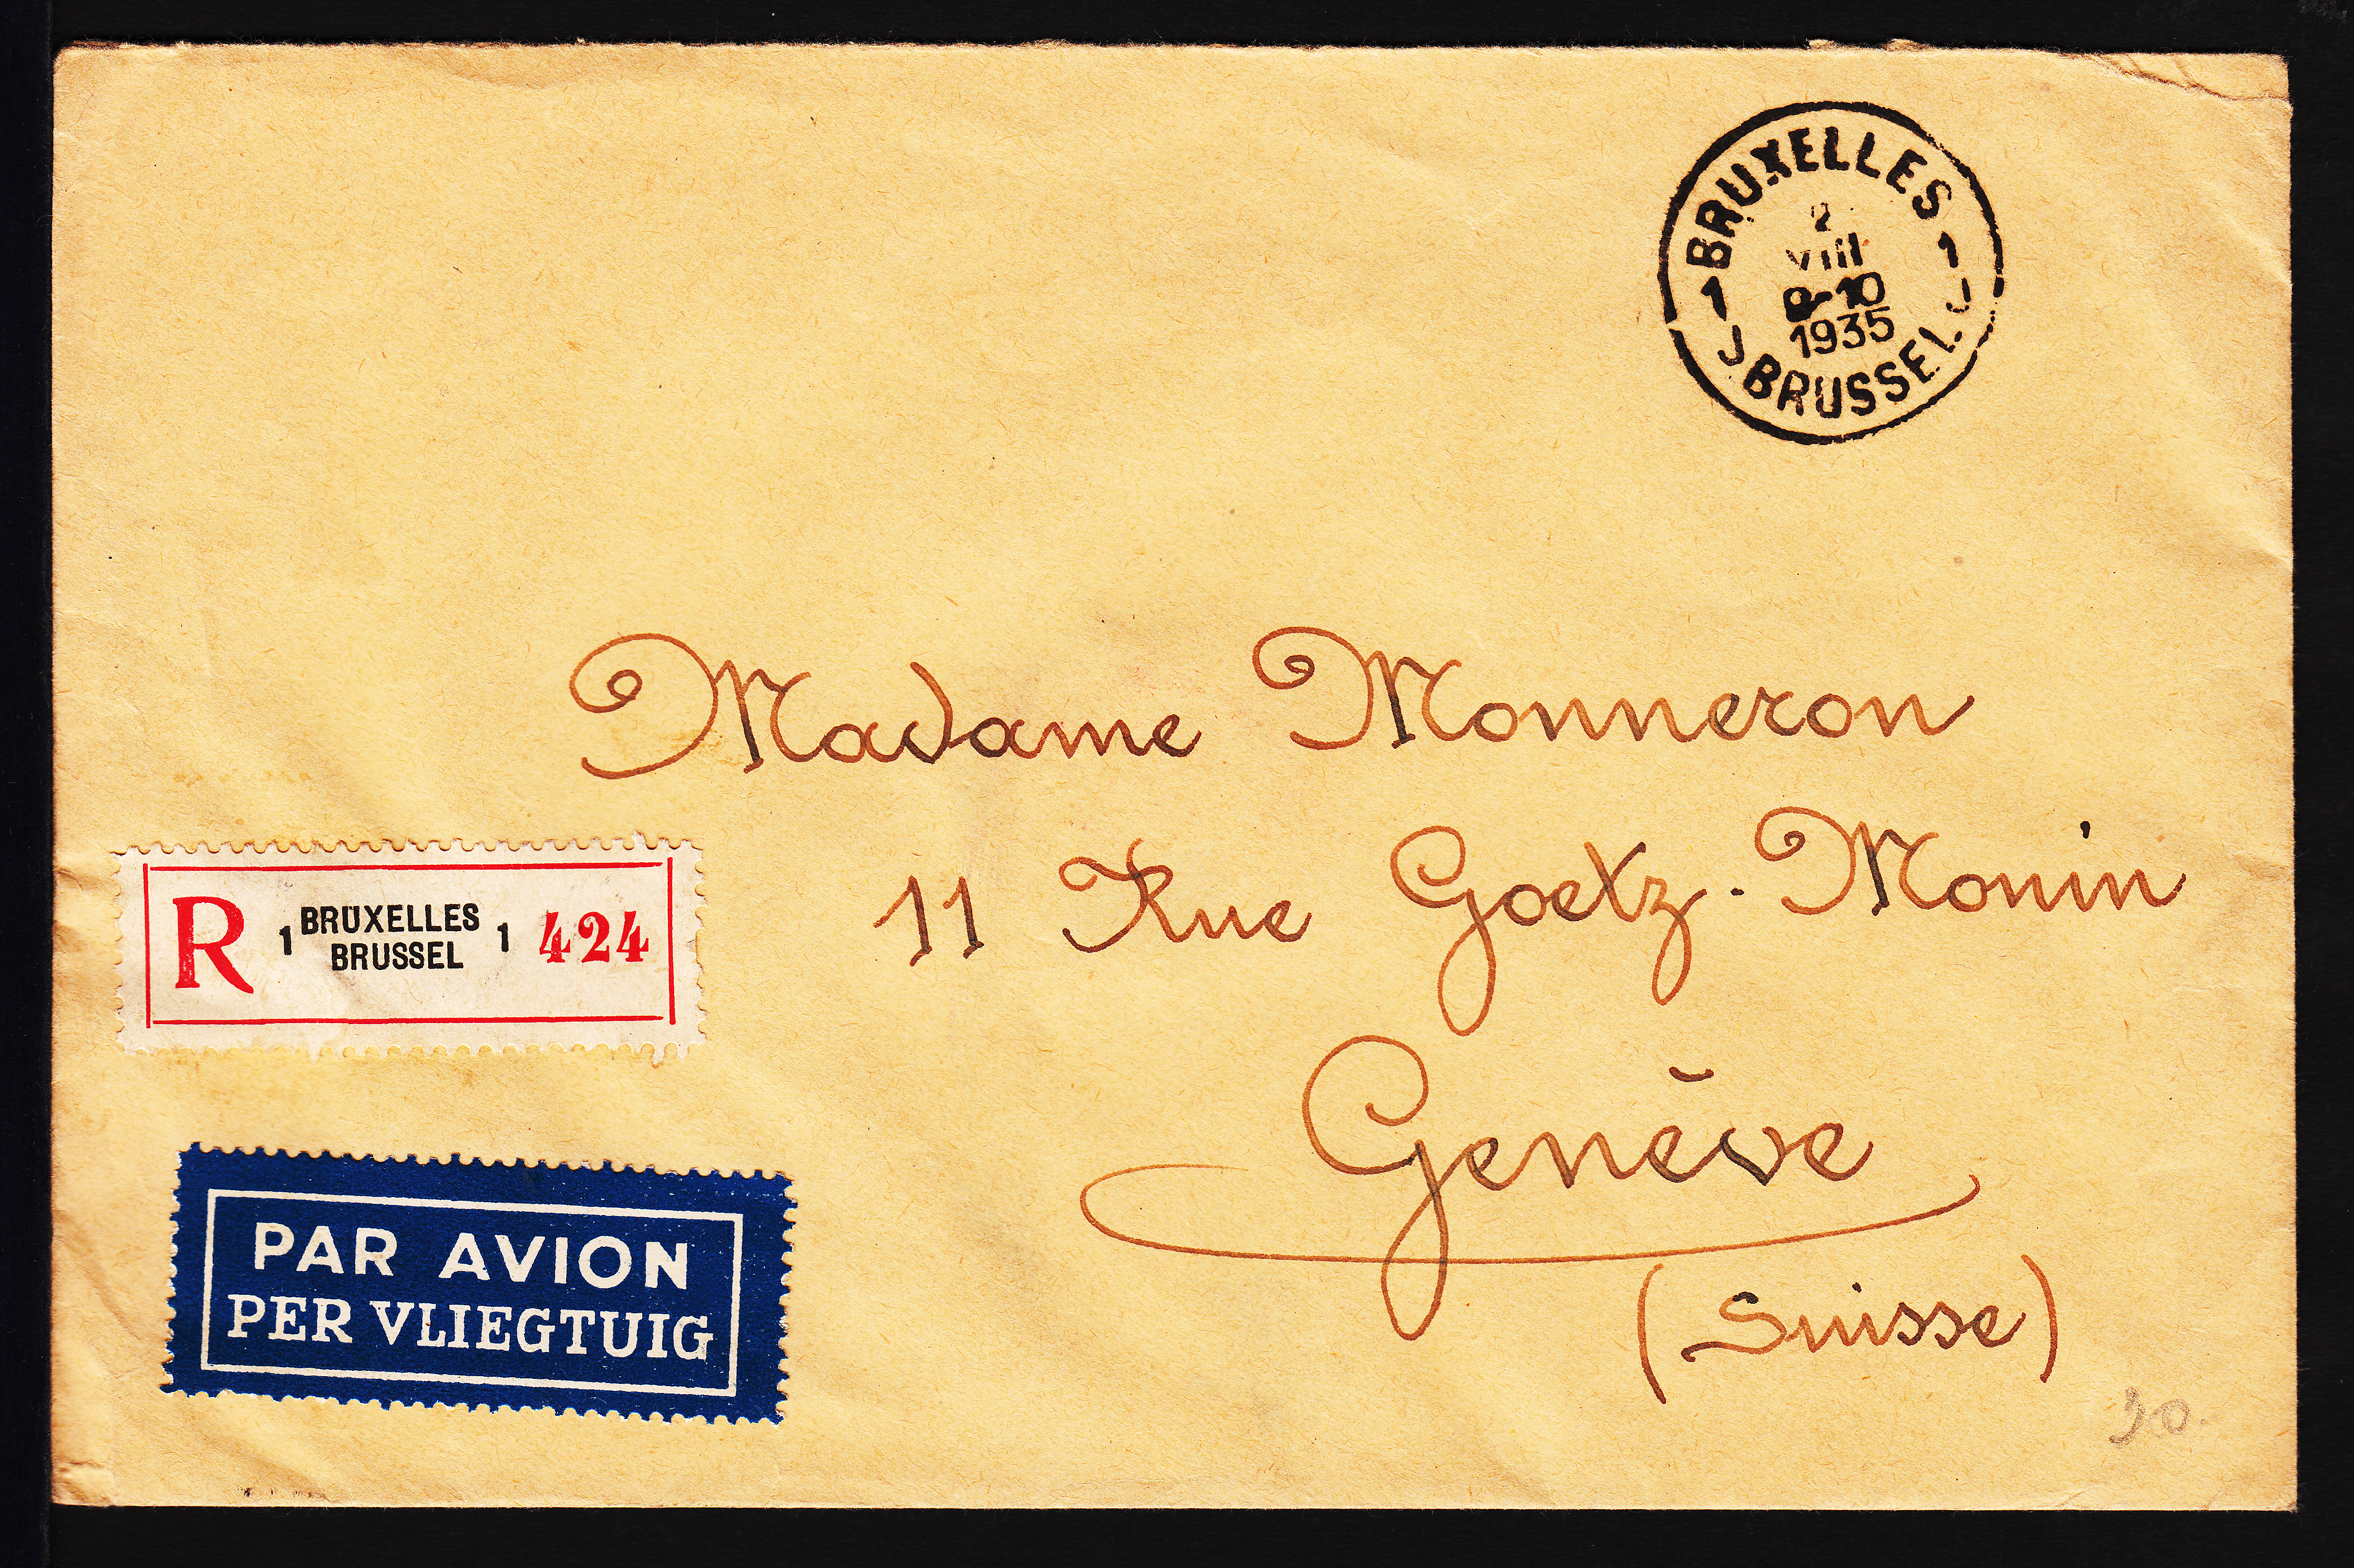 BRUXELLES
1 1
2
VIII
8-10
1935
J J
BRUSSEL
Madame Monneron
11 Rue Goetz-Monin
Genève
(Suisse)
R 1 BRUXELLES 1 424
BRUSSEL
PAR AVION
PER VLIEGTUIG